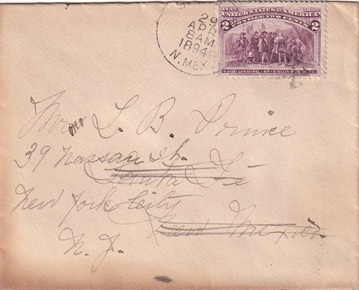 29
APR
8 AM
1894
N. MEX.
UNITED STATES OF AMERICA
2 2
LANDING OF COLUMBUS
Mrs L. B. Prince
39 Nassau St.
Santa Fe
New York City
New Mexico.
N. Y.